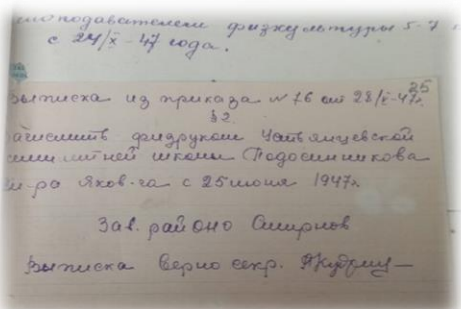 преподавателем физкультуры 5-7
с 24/X-47 года.
25
Выписка из приказа №76 от 28/X-47г.
§2.
Зачислить физруком Устьянцевской
семилетней школы Подосинникова
Ял-ра Яков-га с 25 июня 1947г.
Зав. районо Смирнов
Выписка верно секр.